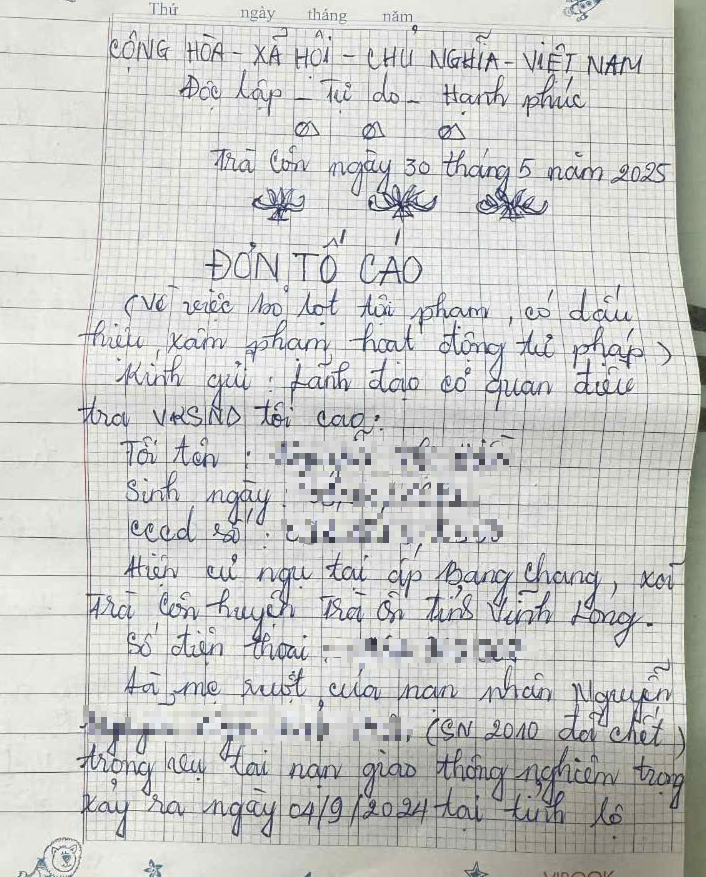 Thứ ngày tháng năm
CỘNG HÒA - XÃ HỘI - CHỦ NGHĨA - VIỆT NAM
Độc lập - Tự do - Hạnh phúc
Trà Côn ngày 30 tháng 5 năm 2025
ĐƠN TỐ CÁO
(Về việc bỏ lọt tội phạm, có dấu
hiệu xâm phạm hoạt động tư pháp)
Kính gửi: Lãnh đạo cơ quan điều
tra VKSND tối cao:
Tôi tên:
Sinh ngày:
cccd số:
Hiện cư ngụ tại ấp Bang Chang, xã
Trà Côn huyện Trà Ôn tỉnh Vĩnh Long.
Số điện thoại:
Là mẹ ruột của nạn nhân Nguyễn
(SN 2010 đã chết)
trong vụ tai nạn giao thông nghiêm trọng
xảy ra ngày 04/9/2024 tại tỉnh lộ